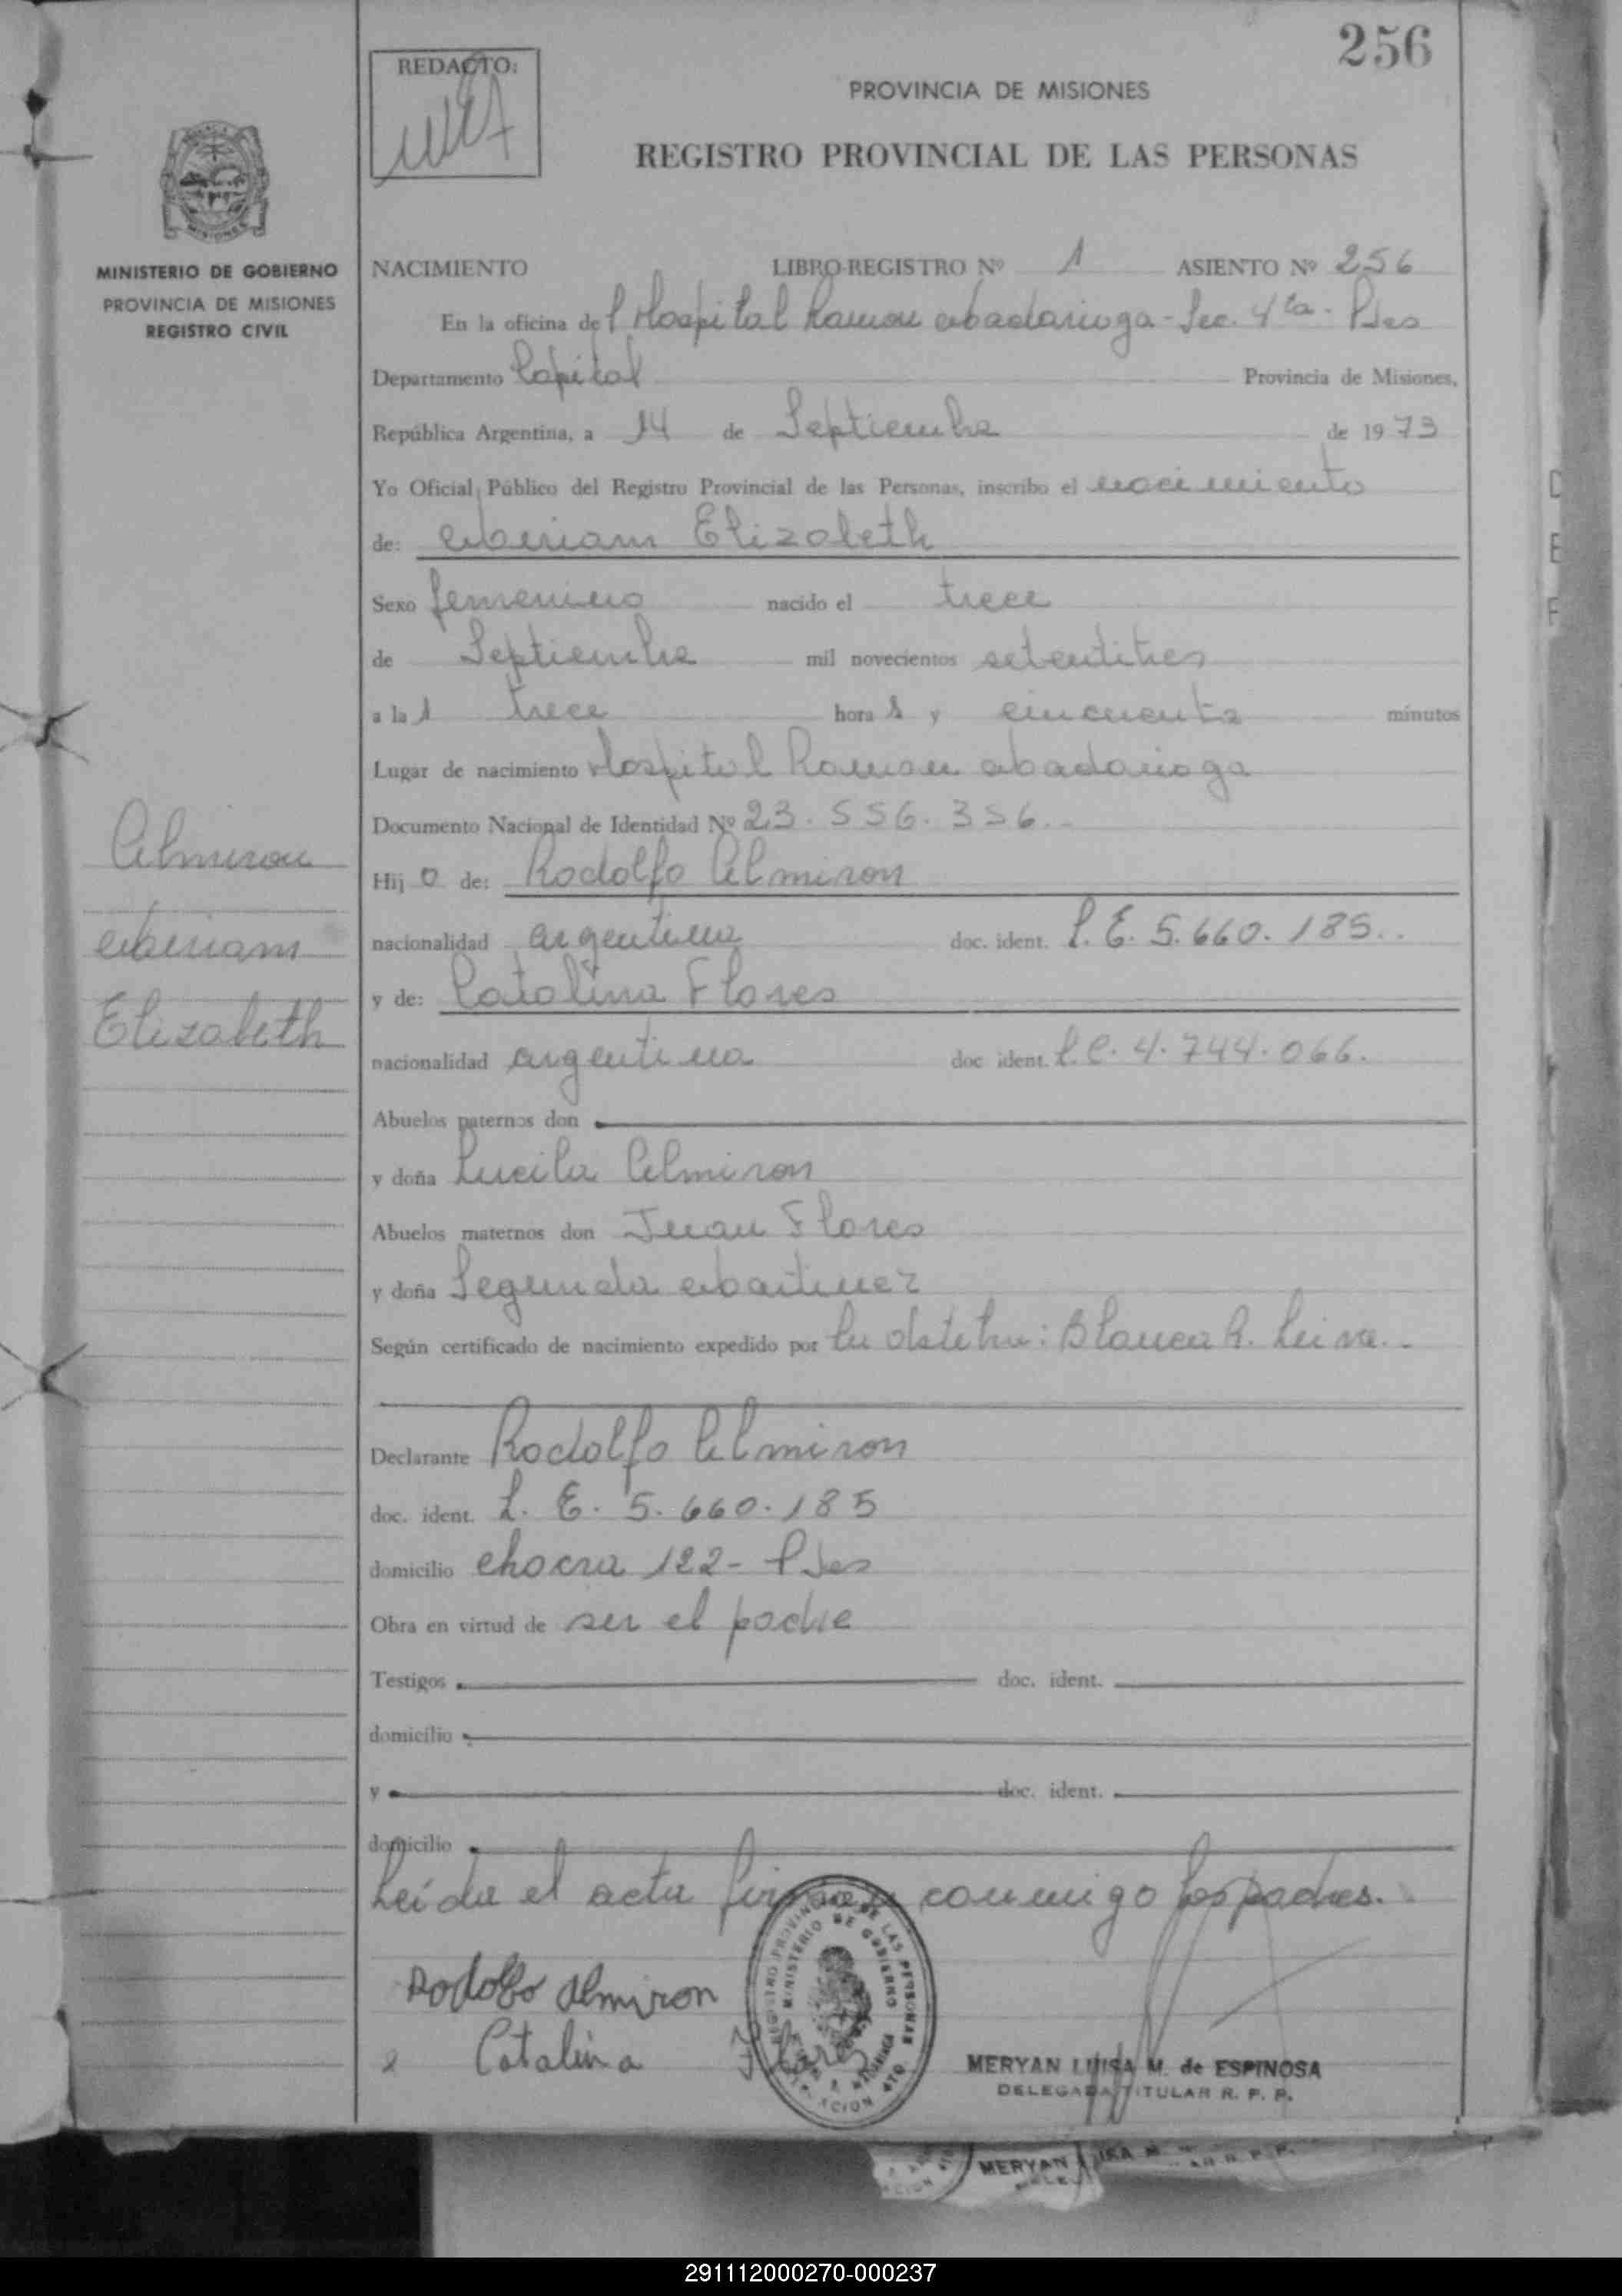 256
REDACTO:
PROVINCIA DE MISIONES
REGISTRO PROVINCIAL DE LAS PERSONAS
MINISTERIO DE GOBIERNO
PROVINCIA DE MISIONES
REGISTRO CIVIL
NACIMIENTO LIBRO-REGISTRO Nº 1 ASIENTO Nº 256
En la oficina del Hospital Ramon Madariaga - Sec. 4ta - Pdas
Departamento Capital Provincia de Misiones,
República Argentina, a 14 de Septiembre de 1973
Yo Oficial Público del Registro Provincial de las Personas, inscribo el nacimiento
de: Miriam Elizabeth
Sexo femenino nacido el trece
de Septiembre mil novecientos setentitres
a las trece horas y cincuenta minutos
Lugar de nacimiento Hospital Ramon Madariaga
Documento Nacional de Identidad Nº 23.556.356.-
Almiron
Miriam
Elizabeth
Hijo de: Rodolfo Almiron
nacionalidad argentina doc. ident. L. E. 5.660.185..
y de: Catalina Flores
nacionalidad argentina doc ident. L.C. 4.744.066.
Abuelos paternos don
y doña Lucila Almiron
Abuelos maternos don Juan Flores
y doña Segunda Martinez
Según certificado de nacimiento expedido por la obstetra: Blanca R. Leiva.-
Declarante Rodolfo Almiron
doc. ident. L. E. 5.660.185
domicilio chacra 122- Pdas
Obra en virtud de ser el padre
Testigos doc. ident.
domicilio
y doc. ident.
domicilio
Leida el acta firman conmigo los padres.
Rodolfo Almiron
Catalina Flores
REGISTRO PROVINCIAL DE LAS PERSONAS
MINISTERIO DE GOBIERNO
MERYAN LUISA M. de ESPINOSA
DELEGADA TITULAR R. P. P.
MERYAN
291112000270-000237